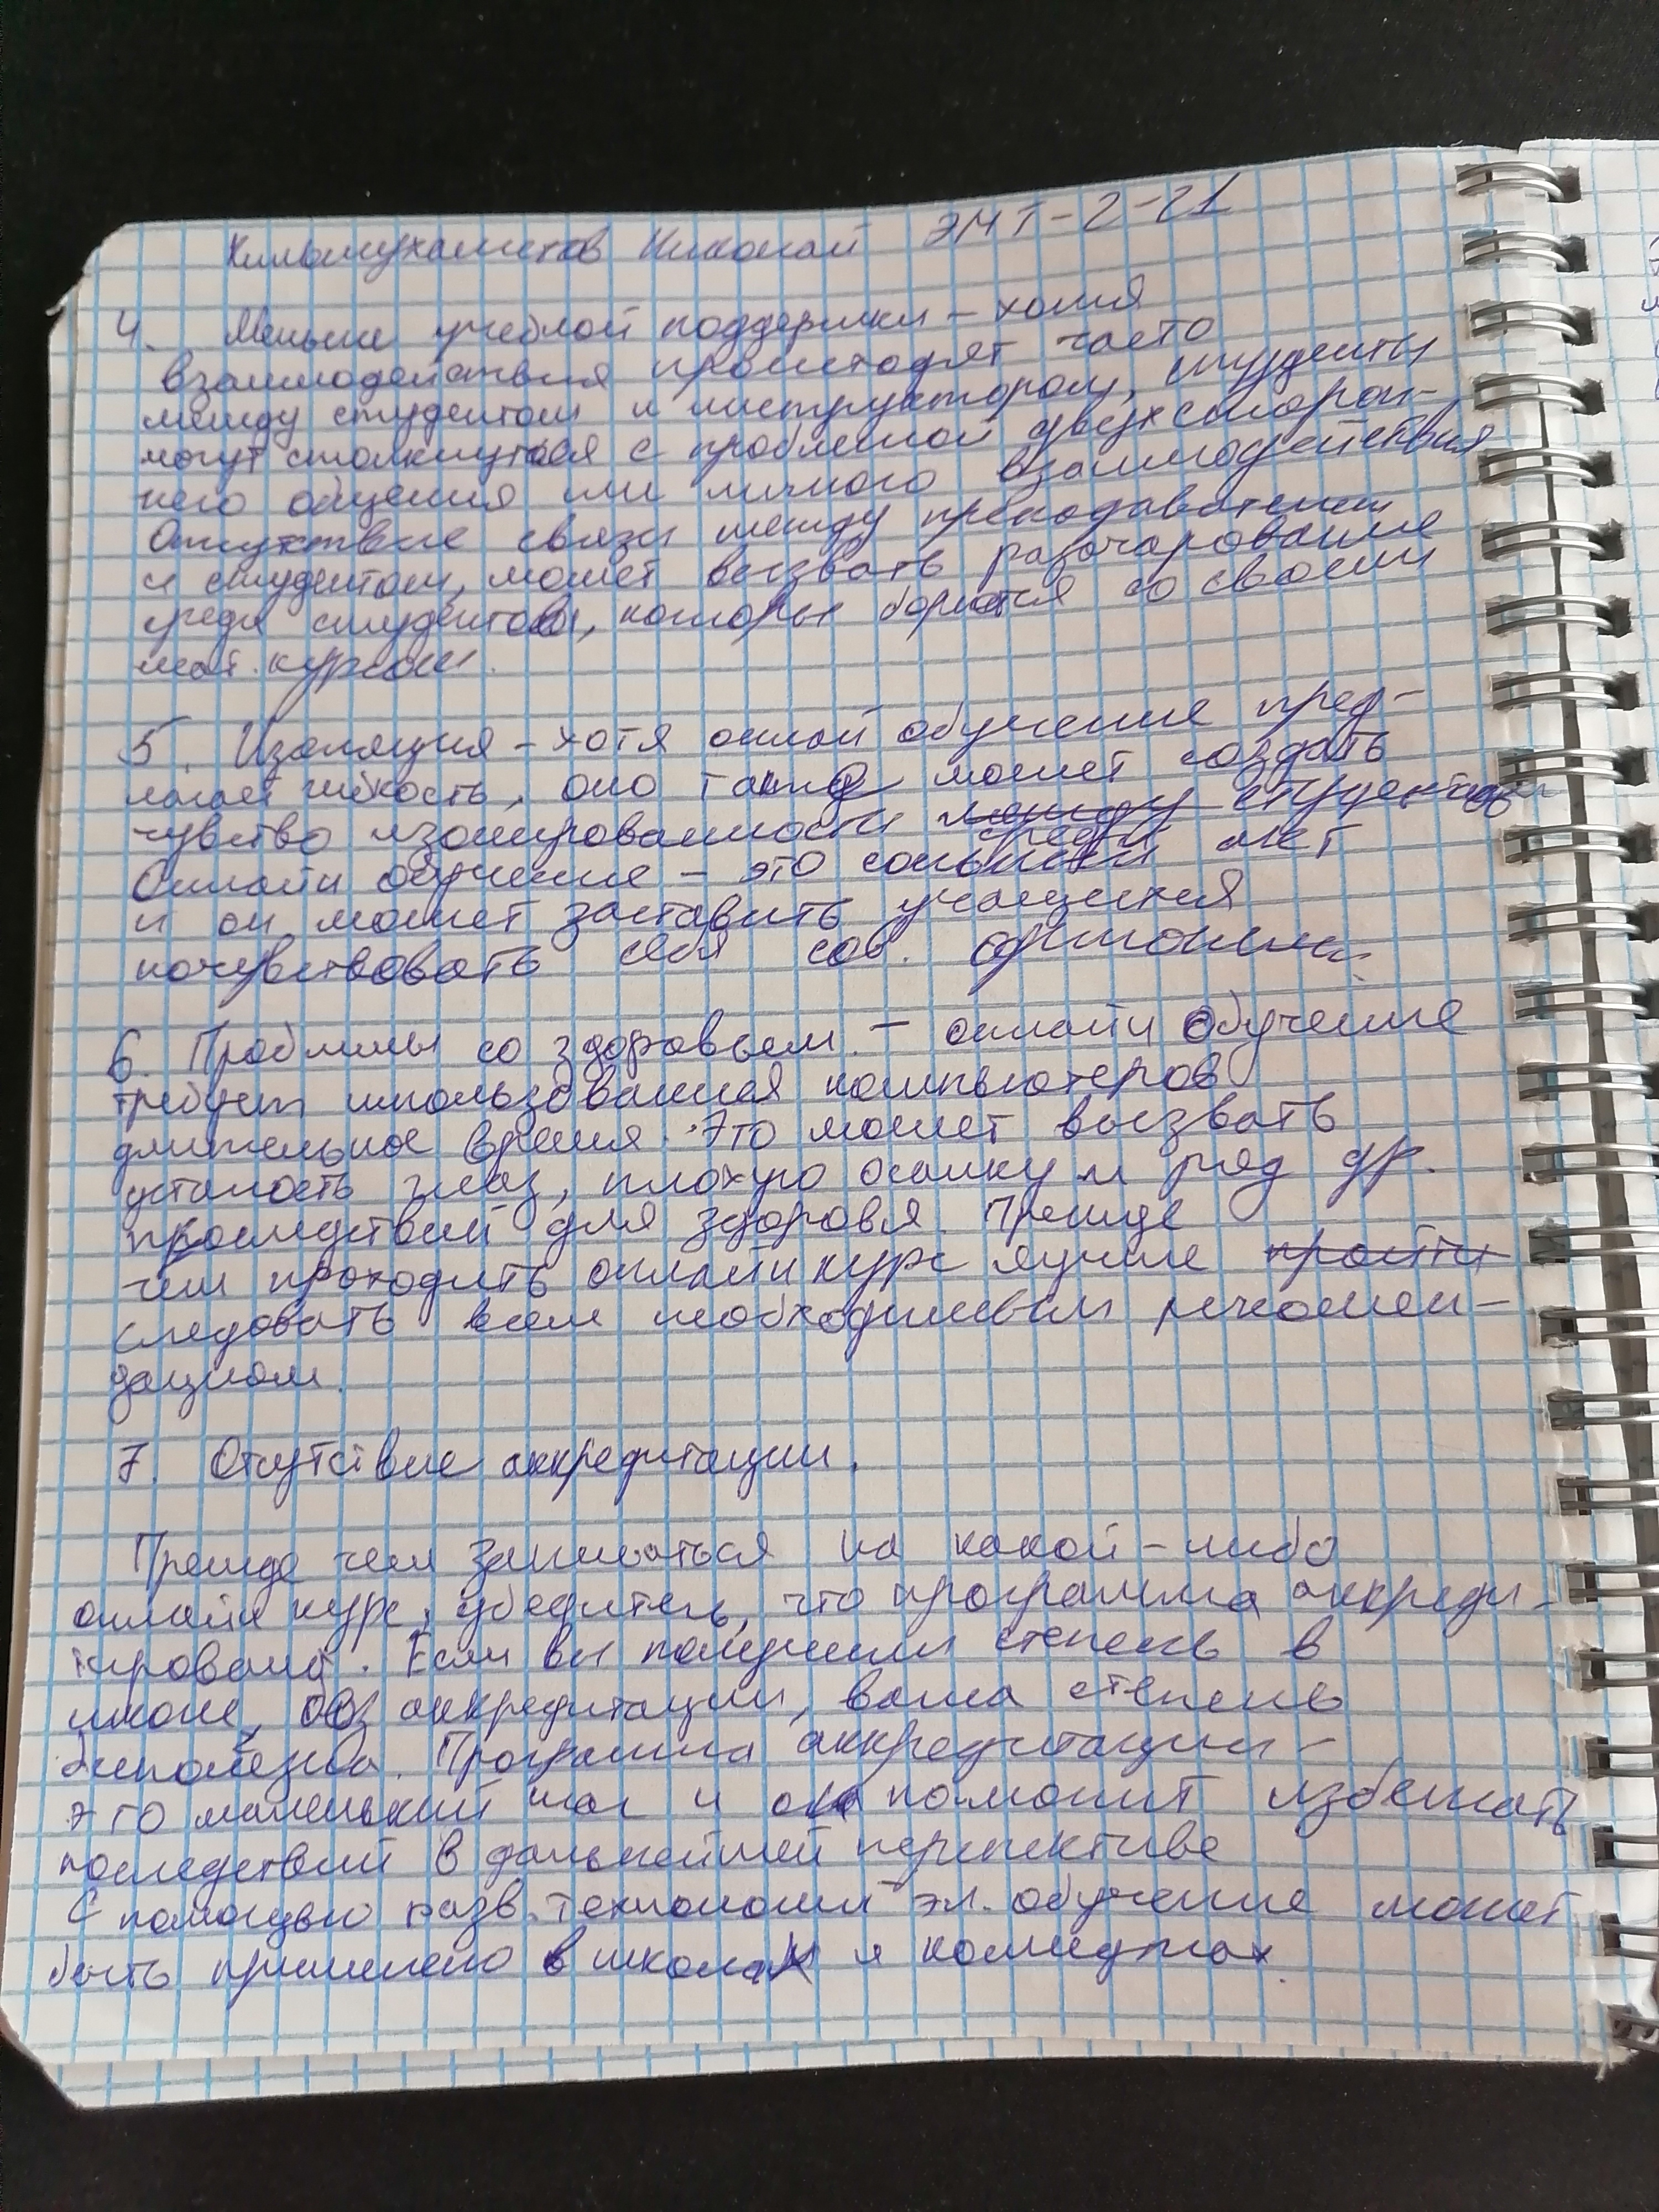 Кильмухаметов Николай ЭМТ-2-21
4. Меньше учебной поддержки - хотя
взаимодействия происходят часто
между студентом и инструктором, студенты
могут столкнуться с проблемой двухсторон-
него общения или личного взаимодействия
Отсутствие связи между преподавателем
и студентом, может вызвать разочарование
среди студентов, которы борются со своим
мат. курсом.
5. Изоляция - хотя онлай обучение пред-
лагает гибкость, оно также может создать
чувство изолированности между среди студентов
Онлайн обучение - это сольный акт
и он может заставить учащихся
почувствовать себя сов. одинокими.
6. Проблемы со здоровьем. - онлайн обучение
требует использования компьютеров
длительное время. Это может вызвать
усталость глаз, плохую осанку и ряд др.
последствий для здоровья. Прежде
чем проходить онлайн курс лучше пройти
следовать всем необходимым рекомен-
дациям.
7. Отсутствие аккредитации.
Прежде чем записаться на какой-либо
онлайн курс, убедитесь, что программа аккреди-
тирована. Если вы получили степень в
школе, без аккредитации, ваша степень
бесполезна. Программа аккредитации -
это маленький шаг и она поможет избежать
последствий в дальнейшей перспективе
С помощью разв. технологий эл. обучение может
быть применено в школах и колледжах.